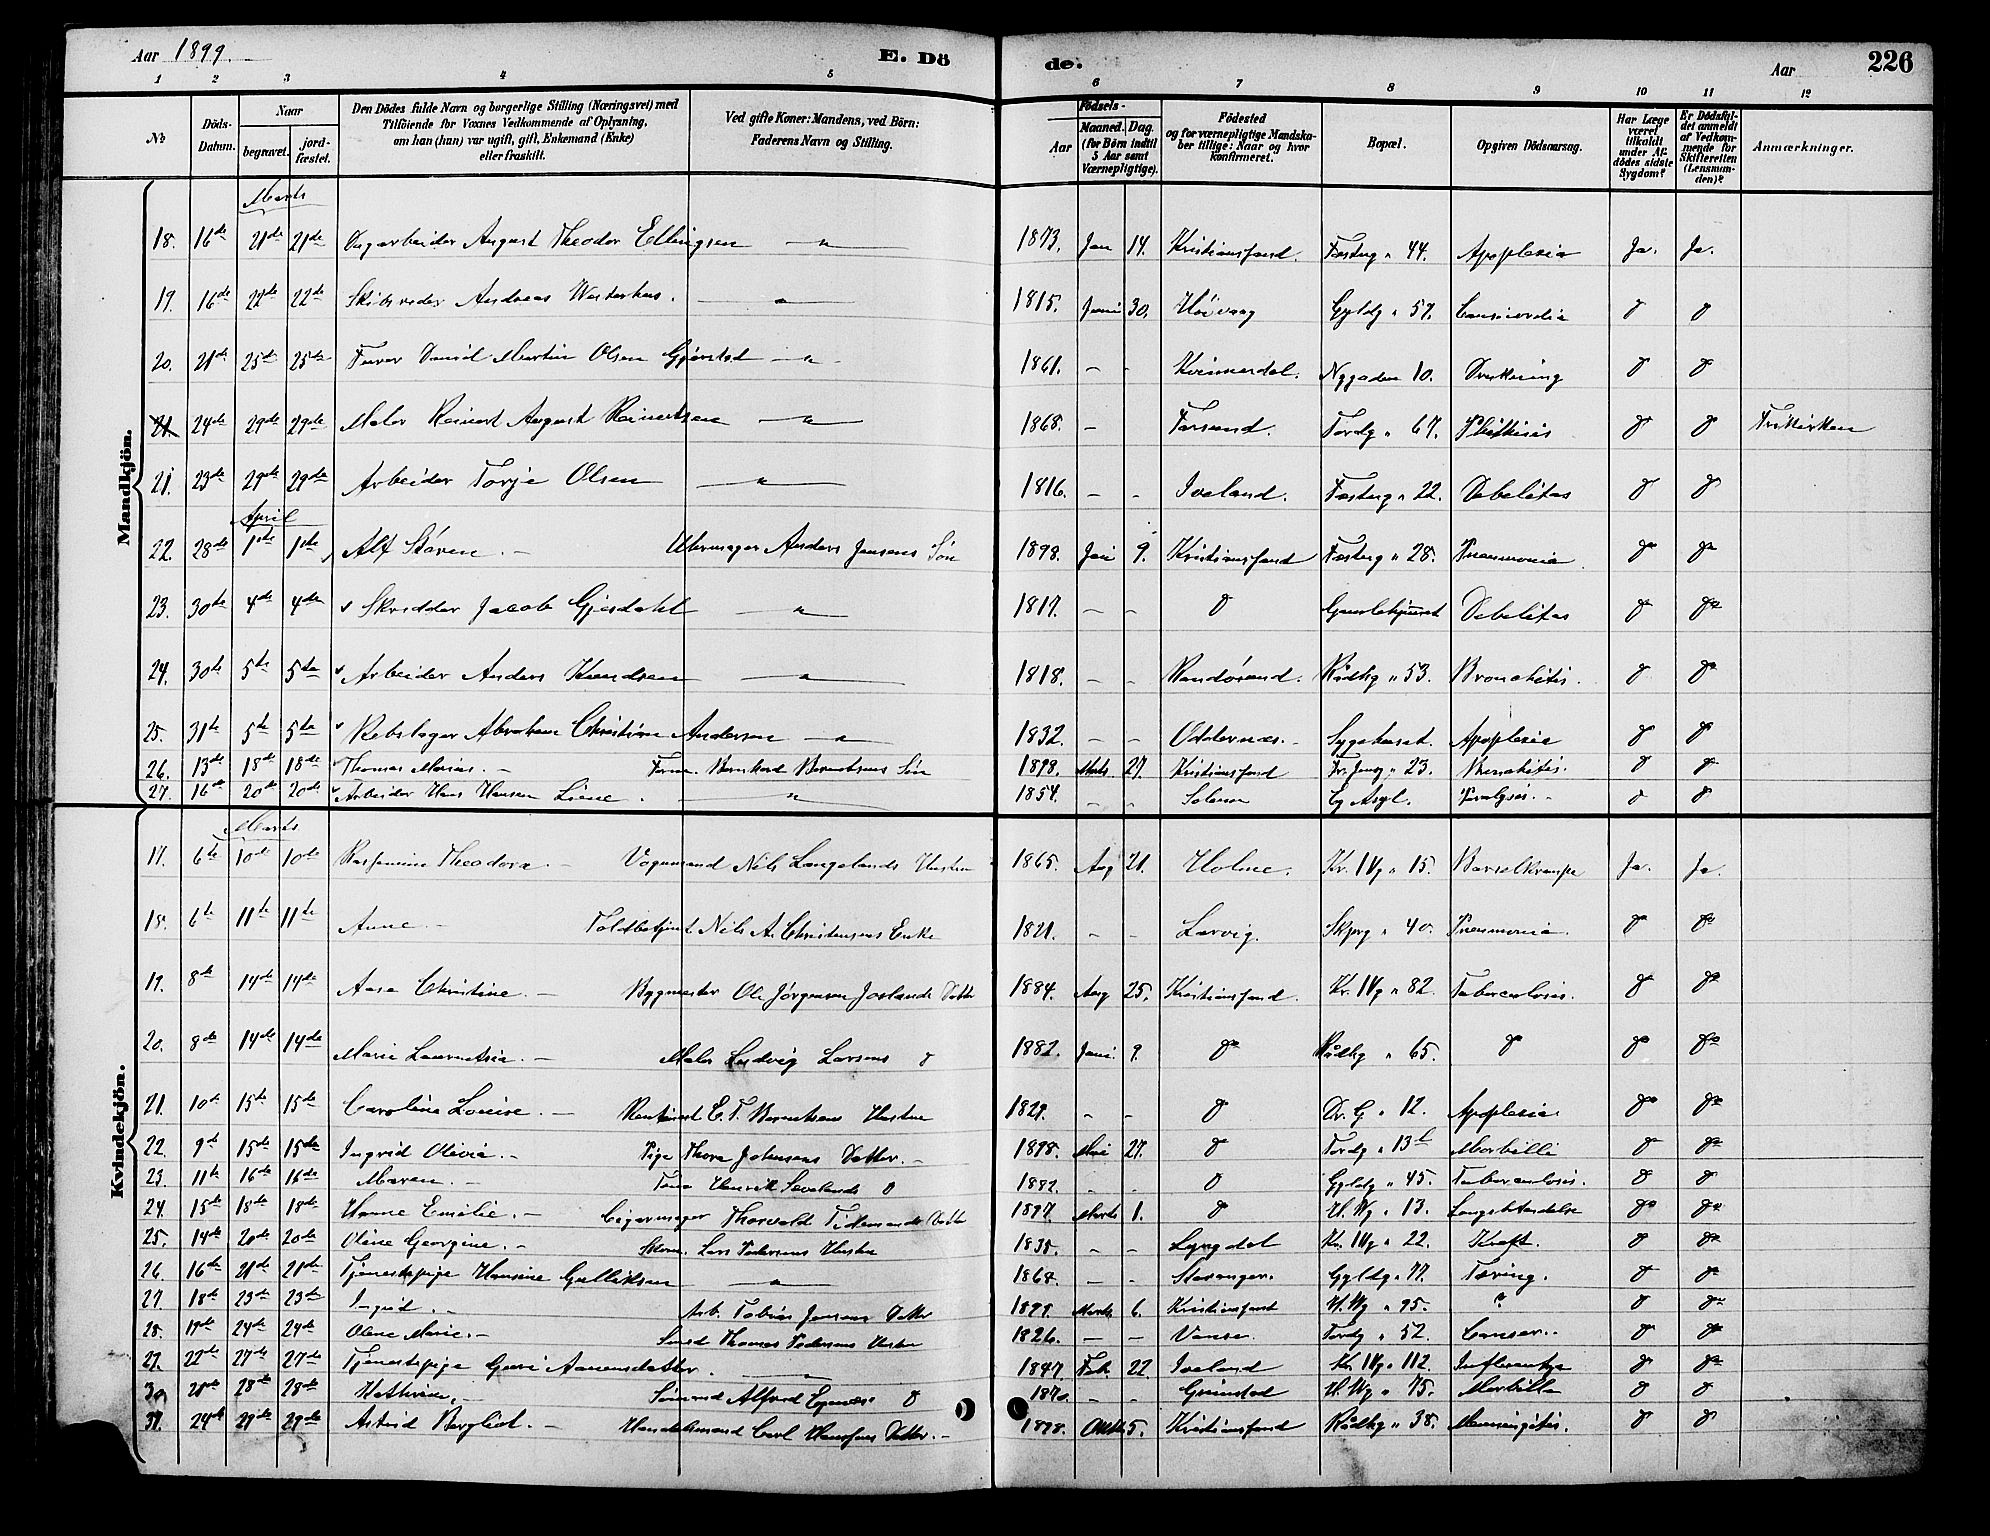 Aar 1899.
E. Dö
de.
Aar
226
1 2 3 4 5 6 7 8 9 10 11 12
No
Döds-Datum.
Naar begravet. jordfæstet.
Den Dödes fulde Navn og borgerlige Stilling (Næringsvei) med Tilföiende for Voxnes Vedkommende af Oplysning, om han (hun) var ugift, gift, Enkemand (Enke) eller fraskilt.
Ved gifte Koner: Mandens, ved Börn: Faderens Navn og Stilling.
Födsels-
Aar Maaned. Dag. (for Börn indtil 5 Aar samt Værnepligtige).
Födested og for værnepligtige Mandskaber tillige: Naar og hvor konfirmeret.
Bopæl.
Opgiven Dödsaarsag.
Har Læge været tilkaldt under Afdödes sidste Sygdom?
Er Dödsfaldet anmeldt af Vedkommende for Skifteretten (Lensmanden)?
Anmærkninger.
Mandkjön.
Marts
18. 16de 21de 21de August Theodor Ellingsen — " — 1873. Jan 14. Kristianssand. Fæstng " 44. Apoplexia Ja. Ja.
19. 16de 22de 22de Andreas Westerhus. — " — 1815. Juni 30. Höivaag Gyldg " 57. d d
20. 21de 25de 25de Farver Daniel Martin Olsen Gjerstad — " — 1861. — - Kvinesdal. Nygaden 10. Drukning d d
21. 24de 29de 29de Maler Reinert August Reinertsen — " — 1868. — - Farsund. Tordg " 67. Phthisis d d Frikirken
21. 23de 29de 29de Arbeider Torje Olsen — " — 1816. - - Iveland. Fæstng " 22. Debelitas d d
April
22. 28de 1ste 1ste Alf Sören. — Uhrmager Anders Jensens Sön 1898. Juni 9. Kristianssand Fæstng " 28. Pneumonia do do
23. 30te 4de 4de Skrædder Jacob Gjesdahl — " — 1817. - - d Gamlehjemmet Debelitas d do
24. 30te 5te 5te Arbeider Anders Knudsen — " — 1818. - - Randösund. Rådhg " 53. Bronchitis. d do
25. 31te 5te 5te Rebslager Abraham Christian Andersen — " — 1832. - - Oddernæs. - Sygehuset. Apoplexia d d
26. 13de 18de 18de Thomas Marius. - Bernhard Berntsens Sön 1898. Marts 27. Kristianssand " 23. Bronchitis. d d
27. 16de 20de 20de Arbeider Hans Hansen Liene. — " — 1854. - - Eg Asyl. Paralysis. - d d
Kvindekjön.
Marts
17. 6te 10de 10de Rasmine Theodora. - Vognmand Nils Langelands Hustru 1865. Aug 21. Holme. Kr. IVg " 15. Barselkrampe Ja. Ja.
18. 6te 11te 11te Anne. - Toldbetjent Nils A. Christensens Enke 1821. - - Larvig. Skprg " 40. Pneumonia. d do
19. 8de 14de 14de Aasa Christine. - Bygmester Ole Jörgensen Joslands Datter 1884. Aug 25. Kristianssand. Kr. IVg " 82. Tuberculosis. d do
20. 8de 14de 14de Marie Laurentsia. - Maler Ludvig Larsens d 1882. Juni. 9. do Rådhg " 65. d do do
21. 10de 15de 15de Caroline Louise. - C. F. Berntsens Hustru 1821. - - d Dr. G " 12. Apoplexia do do
22. 9de 15de 15de Ingrid Olivia. - Pige Thora Johnsens Datter. - 1898. Mai 27. d Tordg " 13b Morbilli d do
23. 11te 16de 16de Maren. - Henrik Sævelands d 1882. - - d Gyldg " 45. Tuberculosis. d d
24. 15de 18de 18de Hanne Emilie. - Cigarmager Thorvald Tidemands Datter 1897. Marts 1. d H. Wg " 13. Lungebetændelse do do
25. 14de 20de 20de Oline Georgine. - Lars Pedersens Hustru 1835. - - Lyngdal Kr. IVg " 22. Kræft. d do
26. 16de 21de 21de Tjenestepige Hansine Gulliksen — " — 1868. - - Stavanger. Gyldg " 77. Tæring. d do
27. 18de 23de 23de Ingrid. - Arb. Tobias Jensens Datter 1899. Marts 6. Kristianssand H. Wg " 95. ? d do
28. 19de 24de 24de Olene Marie. - Smed Thomas Pedersens Hustru 1826. — - Vanse. Tordg " 52. Cancer.. d do
29. 22de 27de 27de Tjenestepige Guri Aanensdatter. — " — 1847. Feb. 22. Iveland Kr. IVg " 112. Influentza d do
30. 21de 28de 28de Kathrine. - Sömand Alfred d 1870. - - Grimstad H. Wg " 75. Morbilli d d
31. 24de 29de 29de Astrid Bergliot. - Handelsmand Carl Hansens Datter. - 1898. Oktb 5. Kristianssand Rådhg " 38. Meningitis. d d